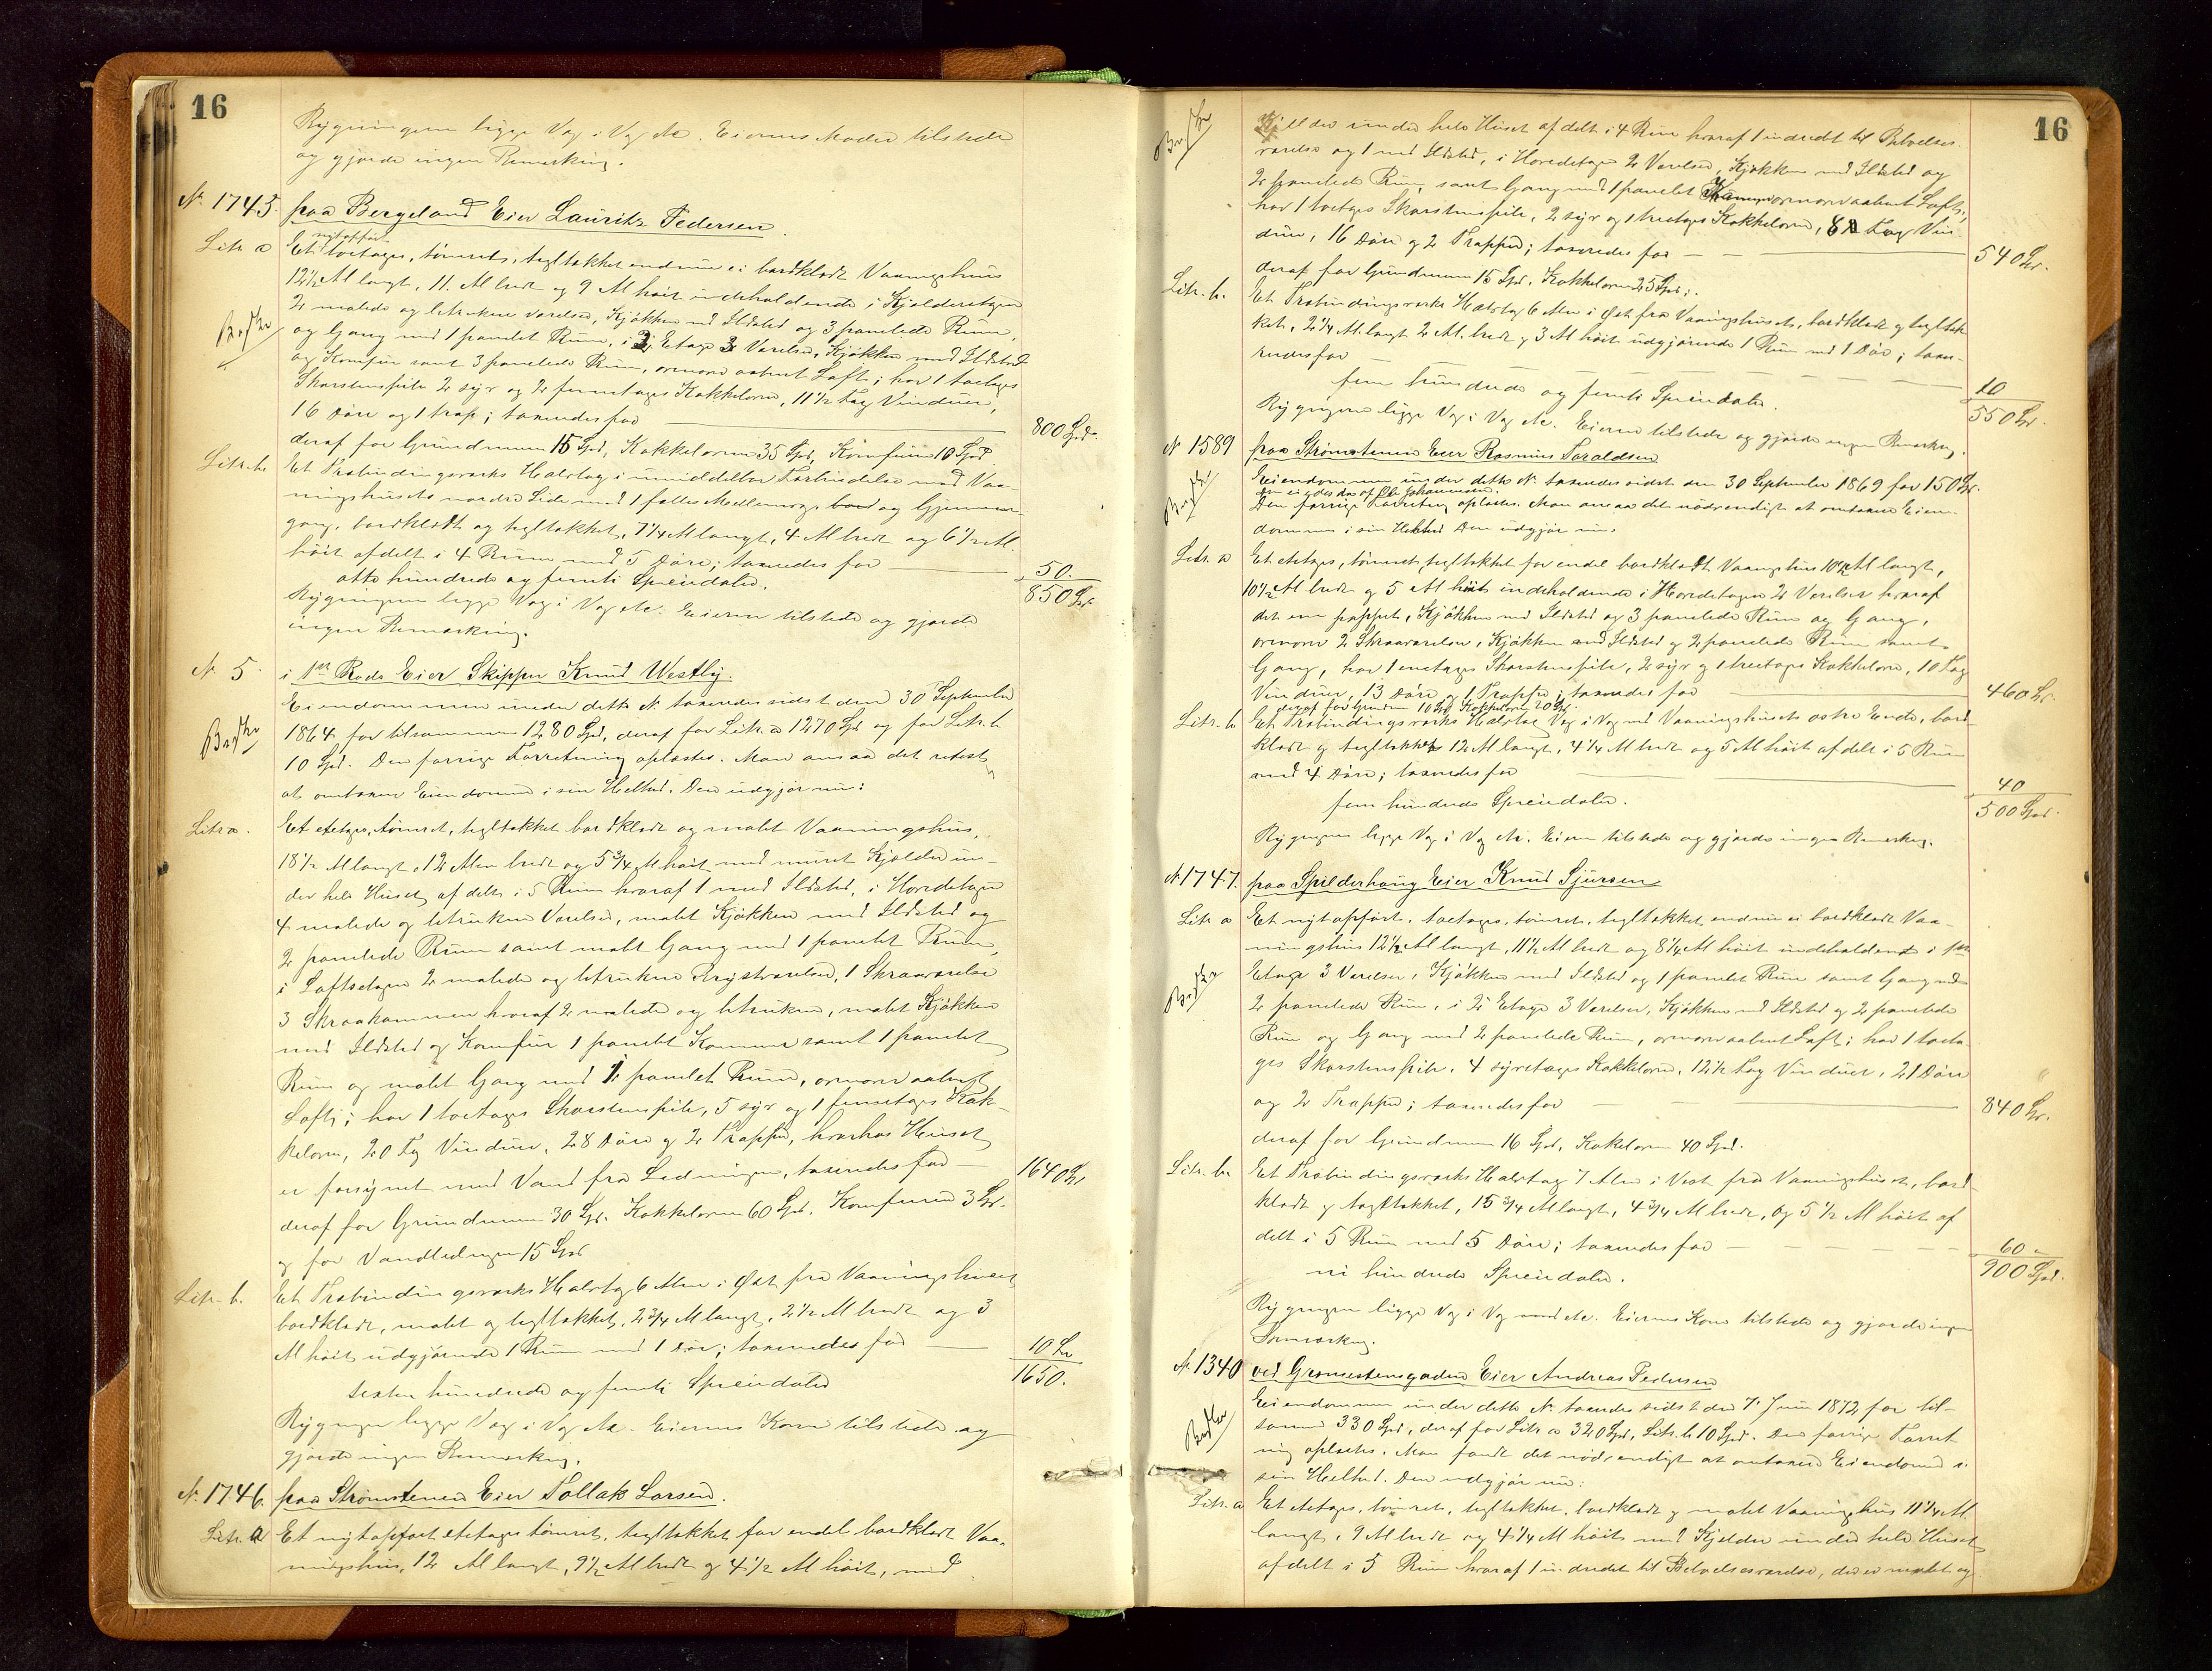 16
Bygningerne ligge Væg i Væg etc. Eierens Moder tilstede
og gjorde ingen Bemærkning.
№ 1745. paa Bergeland Eier Lauritz Pedersen.
Litr. a Et nyt opført toetages, tømret, tegltækket endnu ei bordklædt Vaaningshus
12½ Al langt, 11 Al bredt og 9 Al høit indeholdende i Kjelderetagen
2 malede og betrukne Værelser, Kjøkken med Ildsted og 3 panelede Rum,
og Gang med 1 panelet Rum, i 2. Etage 3 Værelser, Kjøkken med Ildsted
og Komfur samt 3 panelede Rum, ovenover aabent Loft; har 1 toetages
Skorstenspibe 2 syv og 2 femetages Kakkelovne, 11½ Fag Vinduer,
16 Døre og 1 trap; taxeredes for 800 Spd.
deraf for Grundmuren 15 Spd, Kakkelovne 35 Spd, Komfuren 10 Spd.
Litr. b. Et Træbindingsværks Halvtag i umiddelbar Forbindelse med Vaa-
ningshusets nordre Side med 1 fælles Mellemvæg og Gjennem-
gang, bordklædt og tegltækket, 7¼ Al langt, 4 Al bredt og 6½ Al.
høit afdelt i 4 Rum med 5 Døre; taxeredes for 50.
otte hundrede og femti Speciedaler. 850 Spd.
Bygningerne ligge Væg i Væg etc. Eieren tilstede og gjorde
ingen Bemærkning.
№ 5. i 1ste Rode Eier Skipper Knud Westby.
Eiendommen under dette № taxeredes sidst den 30 September
1864 for tilsammen 1280 Spd, deraf for Litr. a 1270 Spd og for Litr. b
10 Spd. Den forrige Forretning oplæstes. Man ansaa det rettest
at omtaxere Eiendommen i sin Helhed. Den udgjør nu:
Litr. a. Et etetages, tømret, tegltækket bordklædt og malet Vaaningshus,
18½ Al langt, 12 Alen bredt og 5¾ Al høit med muret Kjelder un-
der hele Huset afdelt i 5 Rum hvoraf 1 med Ildsted, i Hovedetagen
4 malede og betrukne Værelser, malet Kjøkken med Ildsted og
2 panelede Rum samt malt Gang med 1 panelet Rum,
i Loftsetagen 2 malede og betrukne Qvistværelser, 1 Skraaværelse
3 Skraakammer hvoraf 2 malede og betrukne, malet Kjøkken
med Ildsted og Komfur 1 panelt Kammer samt 1 panelet
Rum og malet Gang med 1 panelet Rum, ovenover aabent
Loft; har 1 toetages Skorstenspibe, 5 syv og 1 femetages Kak-
kelovn, 20 Fag Vinduer, 28 Døre og 2 Trapper, hvorhos Huset
er forsynet med Vand fra Ledningen, taxeredes for 1640 Spd
deraf for Grundmuren 30 Spd. Kakkelovne 60 Spd. Komfuren 3 Spd.
og for Vandledningen 15 Spd
Litr. b. Et Træbindingsværks Halvtag 6 Alen i Øst fra Vaaningshuset
bordklædt, malet og tegltækket, 2¾ Al langt, 2½ Al bredt og 3
Al høit udgjørende 1 Rum med 1 Dør; taxeredes for 10 Spd
sexten hundrede og femti Speciedaler 1650.
Bygningen ligger Væg i Væg etc. Eierens Kone tilstede og
gjorde ingen Bemærkning.
№ 1746. paa Strømstenen Eier Tollak Larsen.
Litr. a Et nyt opført etetages tømret, tegltækket for endel bordklædt Vaa-
ningshus, 12 Al langt, 9½ Al bredt og 4½ Al høit, med
16
Kjelder under hele Huset afdelt i 4 Rum hvoraf 1 indredt til Beboelses-
værelse og 1 med Ildsted, i Hovedetagen 2 Værelser, Kjøkken med Ildsted og
2 panelede Rum, samt Gang med 1 panelet Kammer ovenover aabent Loft;
har 1 toetages Skorstenspibe, 2 syv og 1 treetages Kakkelovn, 8 Fag Vin-
duer, 16 Døre og 2 Trapper; taxeredes for 540 Spd.
deraf for Grundmuren 15 Spd. Kakkelovne 25 Spd.
Litr. b. Et Træbindingsværks Halvtag 6 Alen i Øst fra Vaaningshuset, bordklædt og tegltæk-
ket, 2¼ Al langt 2 Al. bredt og 3 Al høit udgjørende 1 Rum med 1 Dør; taxe-
redes for 10
fem hundrede og femti Speciedaler. 550 Spd.
Bygningerne ligge Væg i Væg etc. Eieren tilstede og gjorde ingen Bemærkning.
№ 1589 paa Strømstenen Eier Rasmus Taraldsen
Eiendommen under dette № taxeredes sidst den 30 September 1869 for 150 Spd.
Den forrige Forretning oplæstes. Man ansaa det nødvendigt at omtaxere Eien-
dommen i sin Helhed Den udgjør nu.
Litr. a Et etetages, tømret, tegltækket for endel bordklædt Vaaningshus 10½ Al langt,
10½ Al bredt og 5 Al høit indeholdende i Hovedetagen 2 Værelser hvoraf
det ene pappet, Kjøkken med Ildsted og 3 panelede Rum og Gang,
ovenover 2 Skraaværelser, Kjøkken med Ildsted og 2 panelede Rum samt
Gang, har 1 enetages Skorstenspibe, 2 syv og 1 treetages Kakkelovn, 10 Fag
Vinduer, 13 Døre og 1 Trappe; taxeredes for 460 Spd.
deraf for Grundm. 10 Spd, Kakkelovne 20 Spd.
Litr. b Et Træbindingsværks Halvtag Væg i Væg med Vaaningshusets østre Ende, bord-
klædt og tegltækket 12 Al langt, 4¼ Al bredt og 5 Al høit afdelt i 5 Rum
med 4 Døre; taxeredes for 40
fem hundrede Speciedaler. 500 Spd.
Bygningen ligger Væg i Væg etc. Eieren tilstede og gjorde ingen Bemærkning.
№ 1747. paa Spilderhaug Eier Knud Sjursen
Litr. a Et nyt opført, toetages, tømret, tegltækket, endnu ei bordklædt Vaa-
ningshus 12½ Al langt, 11½ Al bredt og 8¼ Al høit indeholdende i 1ste
Etage 3 Værelser, Kjøkken med Ildsted og 1 panelet Rum samt Gang med
2 panelede Rum, i 2. Etage 3 Værelser, Kjøkken med Ildsted og 2 panelede
Rum og Gang med 2 panelede Rum, ovenover aabent Loft; har 1 toeta-
ges Skorstenspibe, 4 syvetages Kakkelovne, 12½ Fag Vinduer, 21 Døre
og 2 Trapper; taxeredes for 840 Spd.
deraf for Grundmuren 16 Spd. Kakelovne 40 Spd.
Litr. b. Et Træbindingsværks Halvtag 7 Alen i Vest fra Vaaningshuset, bord-
klædt og tegltækket, 15¾ Al langt, 4¾ Al bredt, og 5½ Al høit af-
delt i 5 Rum med 5 Døre; taxeredes for 60
ni hundrede Speciedaler. 900 Spd.
Bygningen ligger Væg i Væg med etc. Eierens Kone tilstede og gjorde ingen
Bemærkning.
№ 1340 ved Grønsestensgaden Eier Andreas Pedersen
Eiendommen under dette № taxeredes sidst den 7. Juni 1872 for til-
sammen 330 Spd, deraf for Litr. a 320 Spd, Litr. b 10 Spd. Den forrige Forret-
ning oplæstes. Man fandt det nødvendigt at omtaxere Eiendommen i
sin Helhed. Den udgjør nu:
Litr. a Et etetages, tømret, tegltækket, bordklædt og malet Vaaningshus 11¼ Al.
langt, 9 Al bredt og 4¼ Al høit med Kjelder under hele Huset
afdelt i 5 Rum hvoraf 1 indredet til Beboelsesværelse, der er malet og